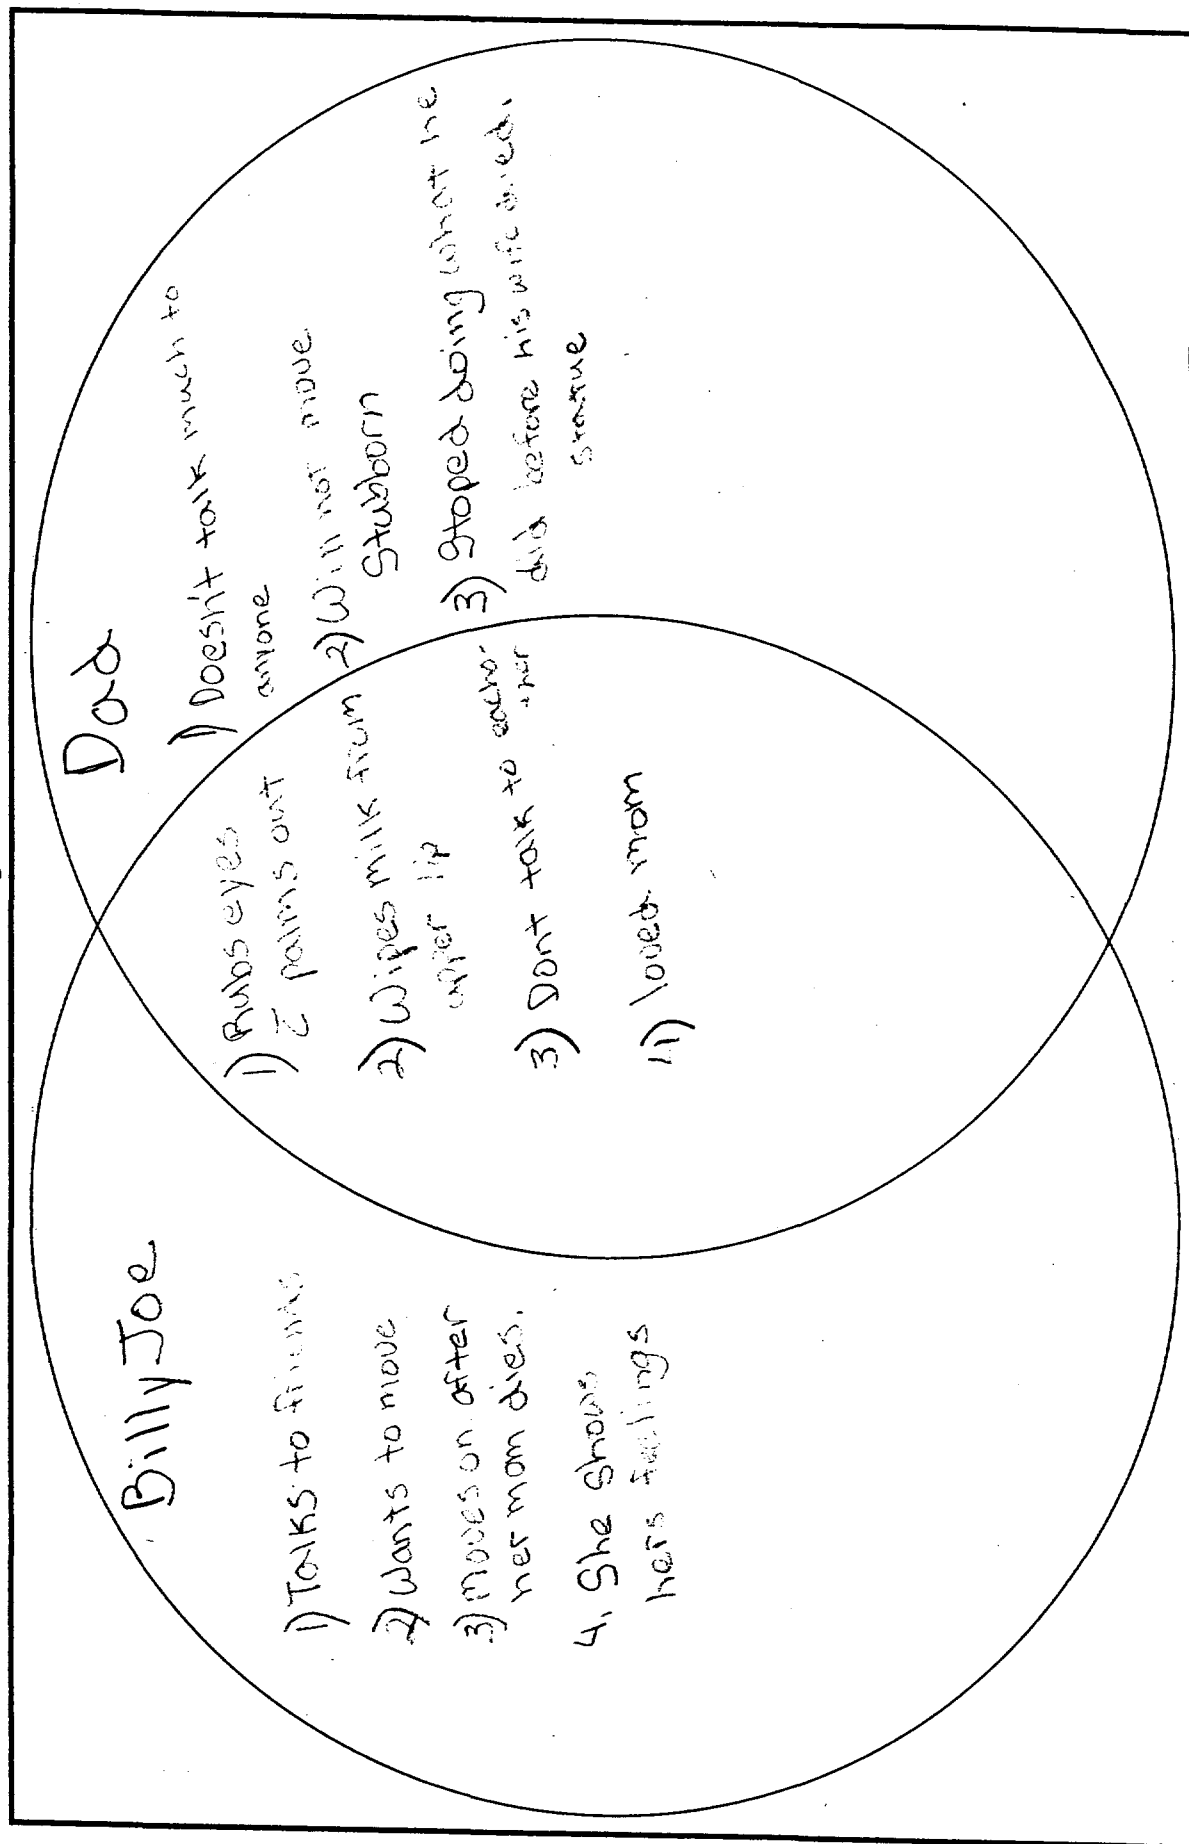 Billy Joe
1) Talks to friends
2) Wants to move
3) Moves on after
her mom dies.
4. She shows
hers feelings
1) Rubs eyes
c̄ palms out
2) Wipes milk from
upper lip
3) Dont talk to eacho-
ther
4) loved mom
Dad
1) Doesn't talk much to
anyone
2) Will not move
Stubborn
3) Stoped doing what he
did before his wife died.
statue